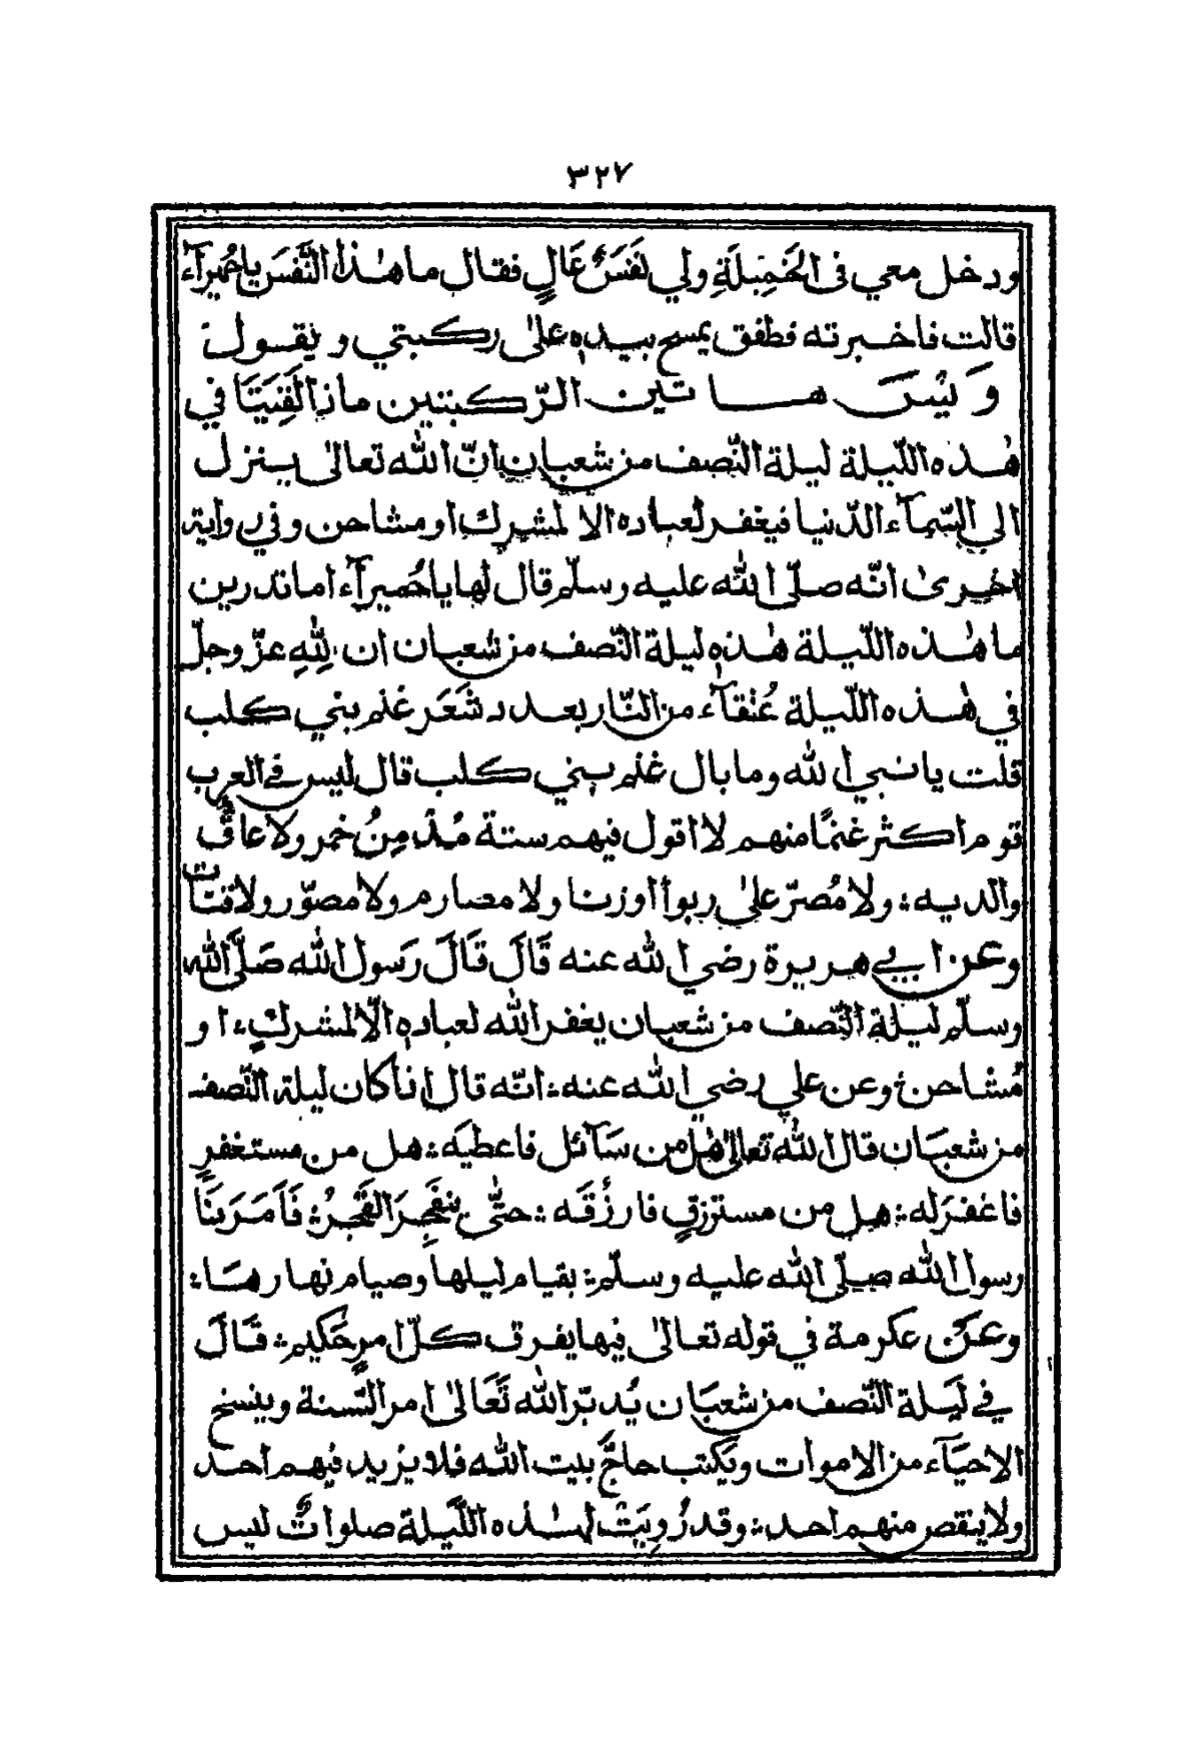 ٣٢٧
ودخل معي فى الخَمِيْلَةِ ولي نَفَسٌ عَالٍ فقال ما هٰذا النَّفَسَ يا حُمَيْرَآء
قالت فاخبرته فطفق يمسح بيده علىٰ ركبتي ويقول
وَيْسَ هاتين الرّكبتين ماذا لَقِيَتَا في
هٰذه اللّيلة ليلة النّصف من شعبان انّ الله تعالىٰ ينزل
الى السّمآء الدّنيا فيغفر لعباده الا لمشرك او مشاحن وفي رواية
اخرىٰ انّه صلّى الله عليه وسلّم قال لها يا حُميرآء اما تدرين
ما هٰذه اللّيلة هٰذه ليلة النّصف من شعبان ان لِلّٰهِ عزّ وجلّ
في هٰذه اللّيلة عُتَقآء من النّار بعدد شَعَر غنم بني كلب
قلت يا نبي الله وما بال غنم بني كلب قال ليس فى العرب
قوم اكثر غنمًا منهم لا اقول فيهم ستة مُدْمِنُ خمر ولا عاقٌّ
والديه ؛ ولا مُصرّ علىٰ ربوا او زنا ولا مصارم ولا مصوّر ولا قتات
وعن ابي هريرة رضي الله عنه قَالَ قَالَ رَسول الله صَلَّى الله
وسلّم ليلة النّصف من شعبان يغفر الله لعباده الّا لمشركٍ ؛ او
مُشاحن ؛ وعن علي رضي الله عنه ؛ انّه قال اذا كان ليلة النّصف
من شعبَان قال الله تعالىٰ هل من سَآئل فاعطيَه ؛ هل من مستغفرٍ
فاغفرَ له ؛ هل من مسترزقٍ فارزُقَه ؛ حتّٰى ينفَجِرَ الفَجْرُ ؛ فَاَمَرَنَا
رسول الله صلّى الله عليه وسلّم ؛ بقيام ليلها وصيام نهارهَا ؛
وعَن عكرمة في قوله تعالىٰ فيها يفرق كلّ امرٍ حَكيم ؛ قَالَ
في لَيلة النّصف من شعبَان يُدبّر الله تَعَالىٰ امر السّنة وينسخ
الاحيَآء من الاموات ويَكتب حاجَّ بيت الله فلا يزيد فيهم احد
ولا ينقص منهم احد ؛ وقد رُوِيَتْ لهٰذه اللَّيلة صلواتٌ ليس